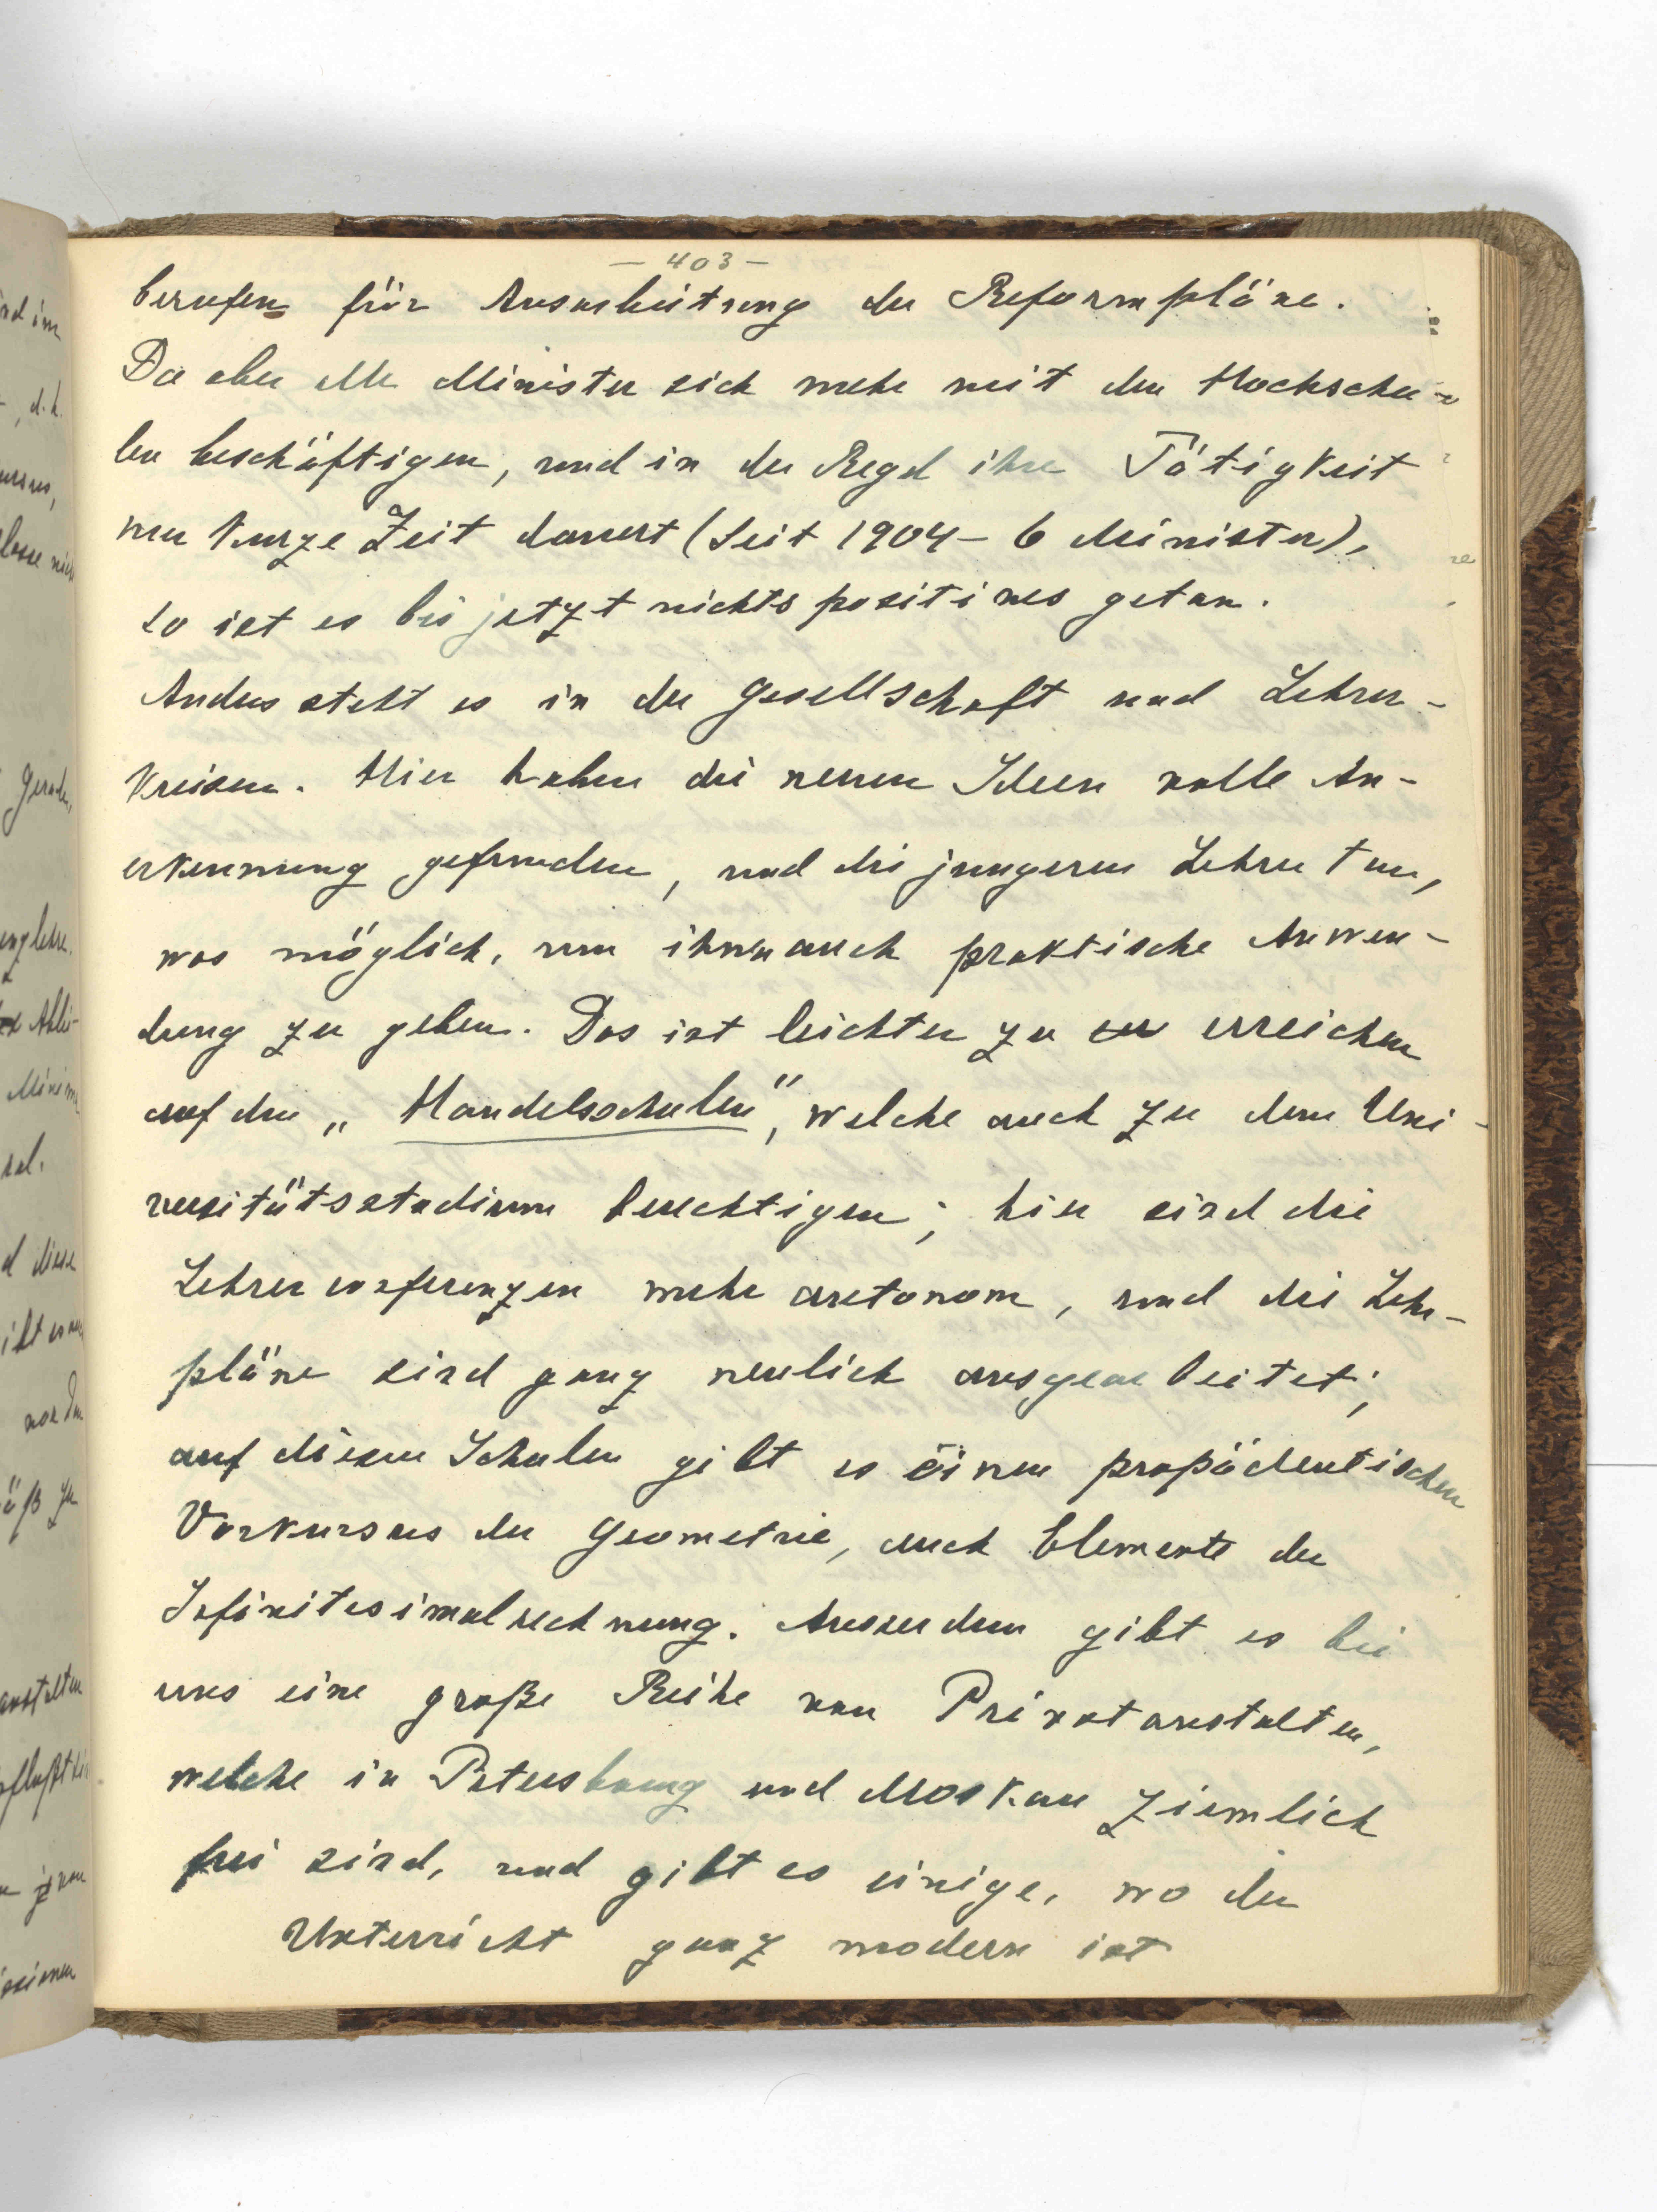 — 403 —
berufen für Ausarbeitung der Reformpläne.
Da aber alle Minister sich mehr mit den Hochschu-
len beschäftigen, und in der Regel ihre Tätigkeit
nur kurze Zeit dauert (Seit 1904 – 6 Minister),
so ist es bis jetzt nichts positives getan.
Anders steht es in der Gesellschaft und Lehrer-
kreisen. Hier haben die neuen Ideen volle An-
erkennung gefunden, und die jungeren Lehrer tun,
was möglich, um ihnen auch praktische Anwen-
dung zu geben. Das ist leichter zu er erreichen
auf den „Handelsschulen", welche auch zu dem Uni-
versitätsstudium berechtigen; hier sind die
Lehrerconferenzen mehr autonom, und die Lehr-
pläne sind ganz neulich ausgearbeitet;
auf diesen Schulen gibt es einen propädeutischen
Vorkursus der Geometrie, auch Elemente der
Infinitesimalrechnung. Ausserdem gibt es bei
uns eine große Reihe von Privatanstalten,
welche in Petersburg und Moskau ziemlich
frei sind, und gibt es einige, wo der
Unterricht ganz modern ist